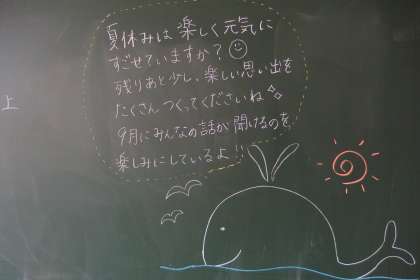 夏休みは楽しく元気に
すごせていますか?
残りあと少し、楽しい思い出を
たくさんつくってくださいね
9月にみんなの話が聞けるのを
楽しみにしているよ!!
上